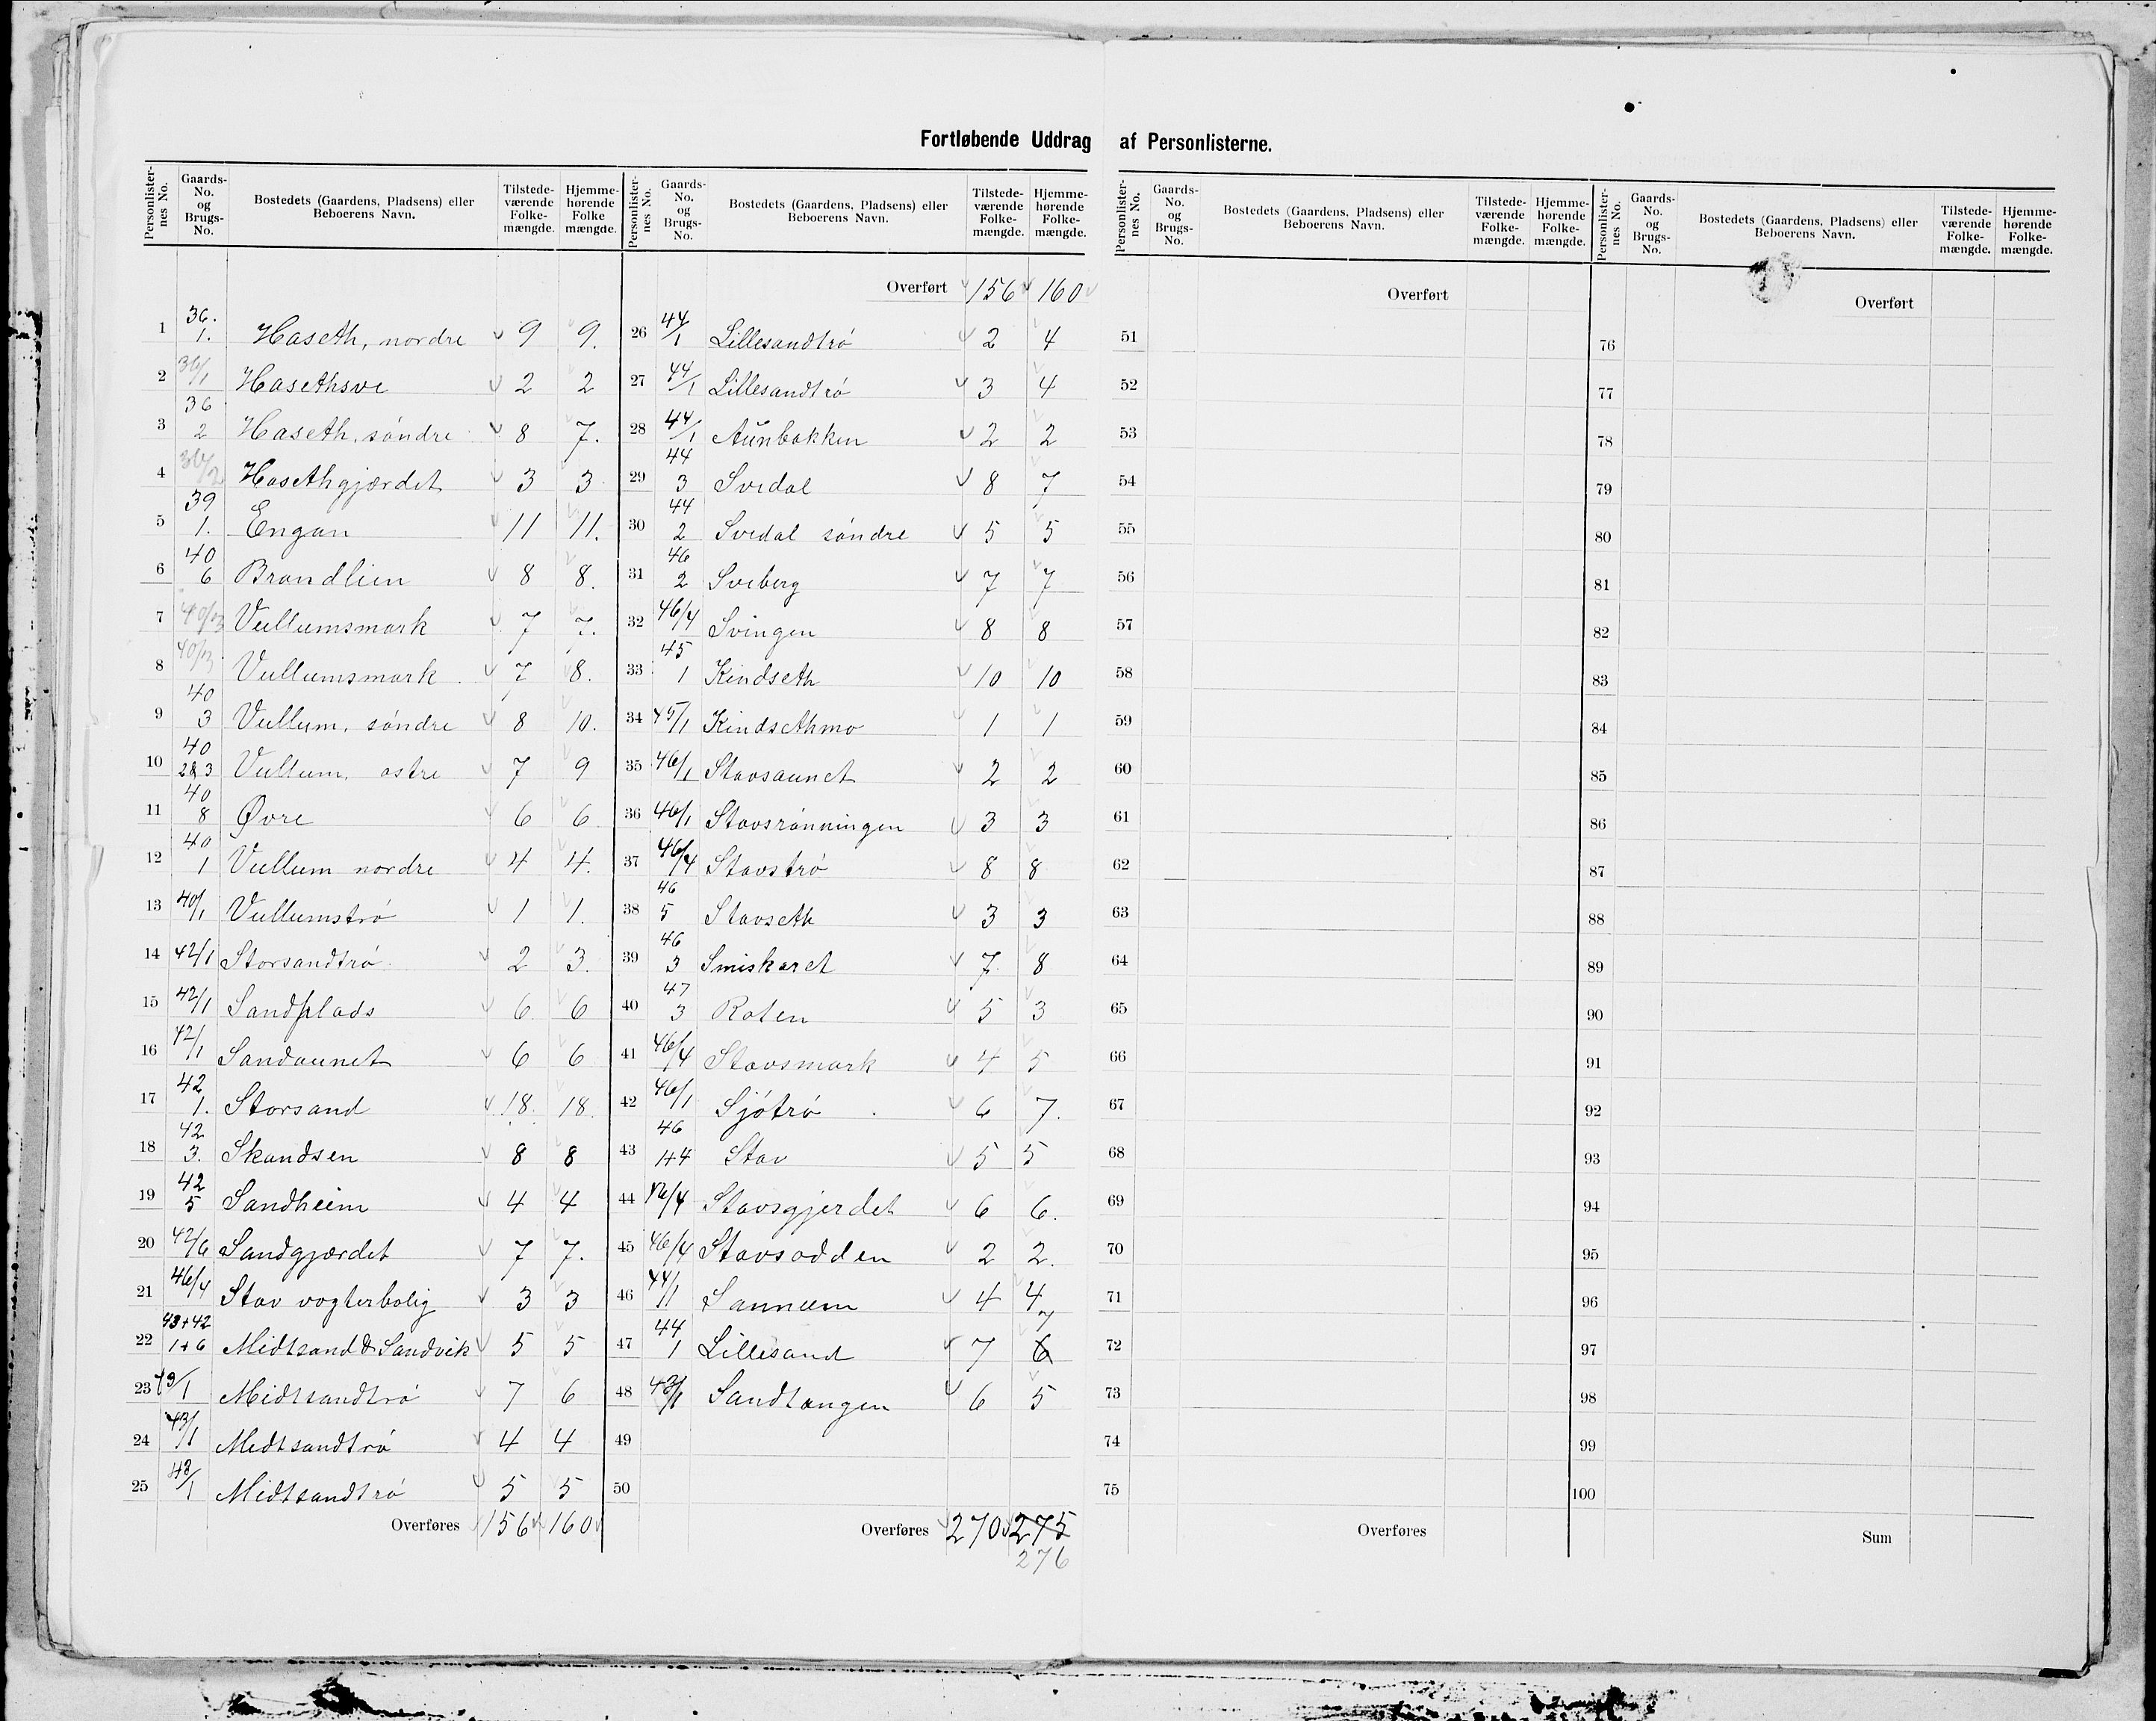 Fortløbende Uddrag af Personlisterne.
Personlister-nes No. | Gaards-No. og Brugs-No. | Bostedets (Gaardens, Pladsens) eller Beboerens Navn. | Tilstede-værende Folke-mængde. | Hjemme-hørende Folke mængde.
1 36. 1. Haseth, nordre 9 9.
2 36/1 Hasethsve 2 2
3 36 2 Haseth, söndre 8 7.
4 36/2 Hasethgjærdet 3 3
5 39 1. Engan 11 11.
6 40 6 Brandlien 8 8.
7 40/3 Vullumsmark 7 7.
8 40/3 Vullumsmark 7 8.
9 40 3 Vullum, söndre 8 10.
10 40 2&3 Vullum, östre 7 9
11 40 8 Øvre 6 6
12 40 1 Vullum nordre 4 4.
13 40/1 Vullumströ 1 1.
14 42/1 Storsandtrö 2 3.
15 42/1 Sandplads 6 6
16 42/1 Sandaunet 6 6
17 42 1. Storsand 18. 18.
18 42 3. Skandsen 8 8
19 42 5 Sandheim 4 4
20 42/6 Sandgjærdet 7 7.
21 46/4 Stav vogterbolig 3 3
22 43+42 1+6 Midtsand & Sandvik 5 5
23 43/1 Midtsandtrö 7 6
24 43/1 Midtsandtrö 4 4
25 43/1 Midtsandtrö 5 5
Overføres 156 160
Personlister-nes No. | Gaards-No. og Brugs-No. | Bostedets (Gaardens, Pladsens) eller Beboerens Navn. | Tilstede-værende Folke-mængde. | Hjemme-hørende Folke-mængde.
Overført 156 160
26 44/1 Lillesandtrö 2 4
27 44/1 Lillesandtrö 3 4
28 44/1 Aunbakken 2 2
29 44 3 Svedal 8 7
30 44 2 Svedal söndre 5 5
31 46 2 Sveberg 7 7
32 46/4 Svingen 8 8
33 45 1 Kindseth 10 10
34 45/1 Kindsethmo 1 1
35 46/1 Stavsaunet 2 2
36 46/1 Stavsrönningen 3 3
37 46/4 Stavströ 8 8
38 46 5 Stavseth 3 3
39 46 3 Smiskaret 7. 8
40 47 3 Roten 5 3
41 46/4 Stavsmark 4 5
42 46/1 Sjötrö 6 7.
43 46 1+4 Stav 5 5
44 46/4 Stavsgjerdet 6 6.
45 46/4 Stavsodden 2 2.
46 44/1 Sannum 4 4
47 44 1 Lillesand 7 6 7
48 43/1 Sandtangen 6 5
49
50
Overføres 270 275
276
Personlister-nes No. | Gaards-No. og Brugs-No. | Bostedets (Gaardens, Pladsens) eller Beboerens Navn. | Tilstede-værende Folke-mængde. | Hjemme-hørende Folke-mængde.
Overført
51
52
53
54
55
56
57
58
59
60
61
62
63
64
65
66
67
68
69
70
71
72
73
74
75
Overføres
Personlister-nes No. | Gaards-No. og Brugs-No. | Bostedets (Gaardens, Pladsens) eller Beboerens Navn. | Tilstede-værende Folke-mængde. | Hjemme-hørende Folke-mængde.
Overført
76
77
78
79
80
81
82
83
84
85
86
87
88
89
90
91
92
93
94
95
96
97
98
99
100
Sum